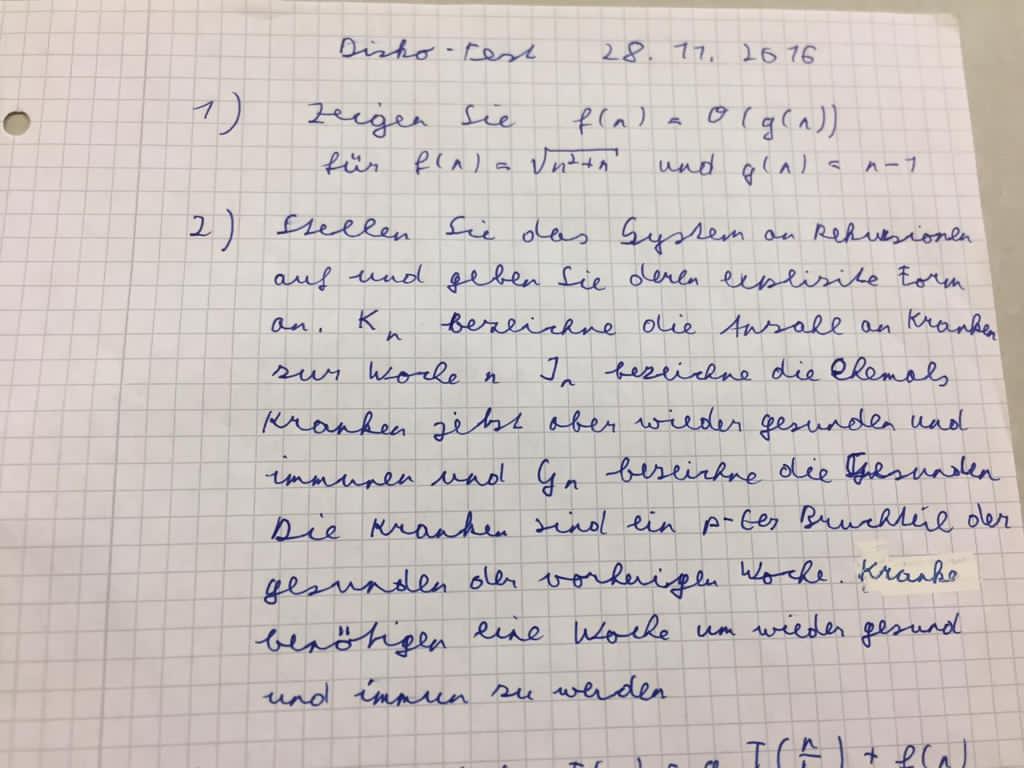 Disko-Test 28.11.2016
1) Zeigen Sie f(n) = O(g(n))
für f(n) = √n²+n und g(n) = n-1
2) Stellen Sie das System an Rekursionen
auf und geben Sie deren explizite Form
an. Kn bezeichne die Anzahl an Kranken
zur Woche n In bezeichne die Ehemals
Kranken jetzt aber wieder gesunden und
immunen und Gn bezeichne die Gesunden
Die Kranken sind ein p-tes Bruchteil der
gesunden der vorherigen Woche. Kranke
benötigen eine Woche um wieder gesund
und immun zu werden